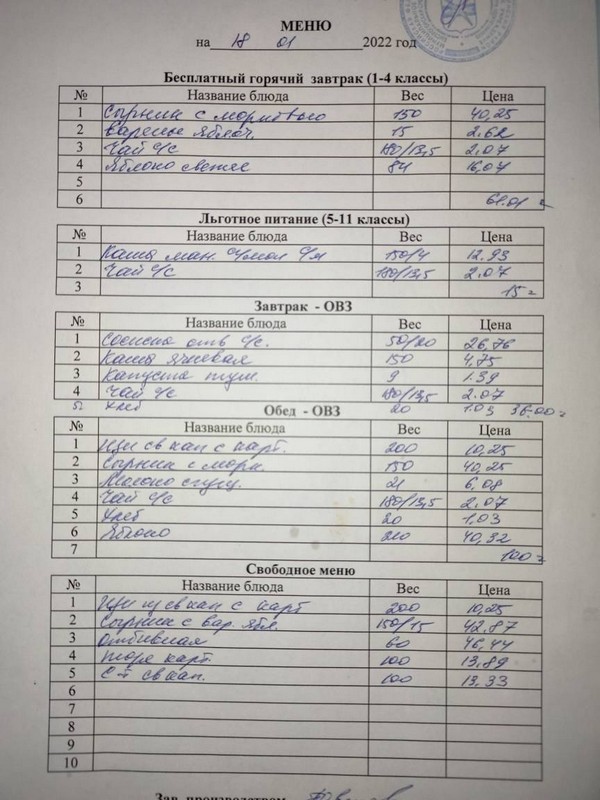 МЕНЮ
на 18 01 2022 год
Бесплатный горячий завтрак (1-4 классы)
№ Название блюда Вес Цена
1 Сырник с морковью 150 40,25
2 Варенье яблоч. 15 2.62
3 Чай с/с 180/13,5 2.07
4 Яблоко свежее 84 16,07
5
6 61.01
Льготное питание (5-11 классы)
№ Название блюда Вес Цена
1 Каша ман. с/мол с/м 150/4 12.93
2 Чай с/с 180/13,5 2.07
3 15=
Завтрак - ОВЗ
№ Название блюда Вес Цена
1 Сосиска отв с/с. 50/20 26,76
2 Каша ячневая 150 4,75
3 Капуста туш. 9 1.39
4 Чай с/с 180/13,5 2.07
5 Хлеб 20 1.03 36.00=
Обед - ОВЗ
№ Название блюда Вес Цена
1 Щи св кап с карт. 200 10,25
2 Сырник с морк. 150 40,25
3 Молоко сгущ. 21 6,08
4 Чай с/с 180/13,5 2,07
5 Хлеб 20 1,03
6 Яблоко 210 40,32
7 100=
Свободное меню
№ Название блюда Вес Цена
1 Щи из св кап с карт 200 10,25
2 Сырник с вар. ябл. 150/15 42.87
3 Отбивная 60 46,44
4 Пюре карт. 100 13,89
5 С-т св кап. 100 13,33
6
7
8
9
10
Зав. производством